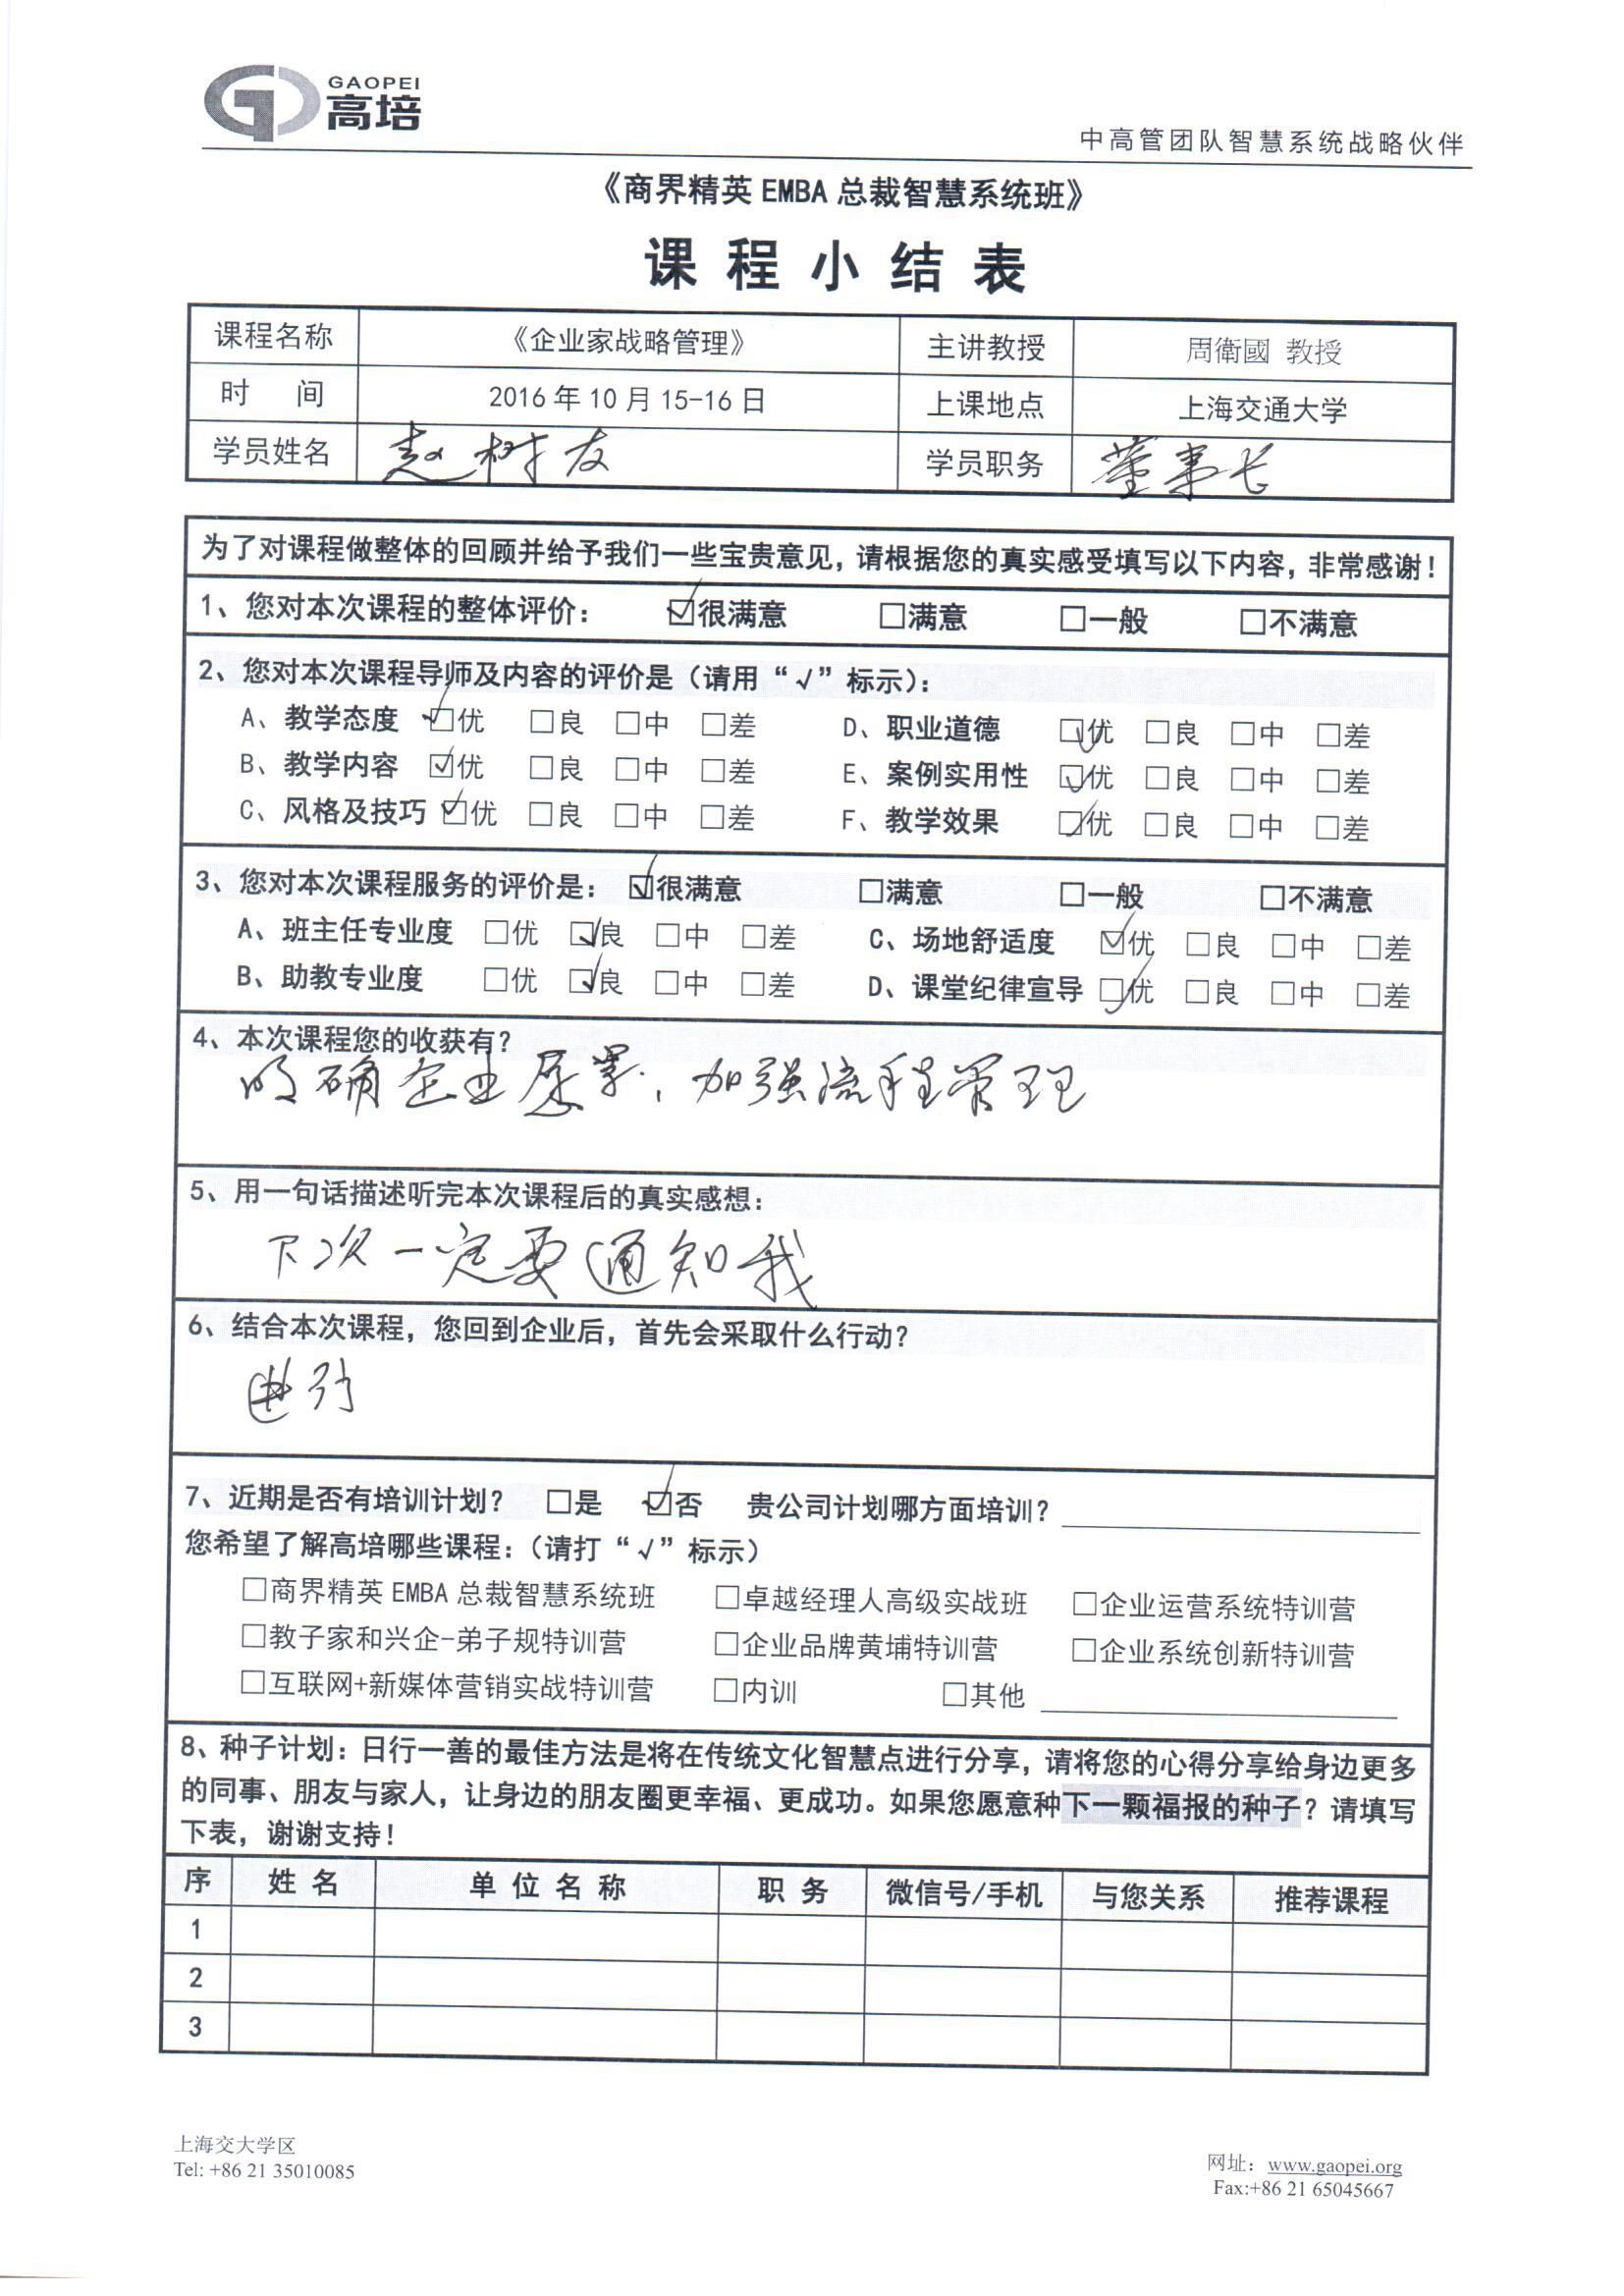 GAOPEI
高培
中高管团队智慧系统战略伙伴
《商界精英 EMBA 总裁智慧系统班》
课程小结表
课程名称 《企业家战略管理》 主讲教授 周衛國 教授
时 间 2016 年 10 月 15-16 日 上课地点 上海交通大学
学员姓名 赵树友 学员职务 董事长
为了对课程做整体的回顾并给予我们一些宝贵意见，请根据您的真实感受填写以下内容，非常感谢！
1、您对本次课程的整体评价： ☑很满意 □满意 □一般 □不满意
2、您对本次课程导师及内容的评价是（请用“√”标示）：
A、教学态度 ☑优 □良 □中 □差 D、职业道德 ☑优 □良 □中 □差
B、教学内容 ☑优 □良 □中 □差 E、案例实用性 ☑优 □良 □中 □差
C、风格及技巧 ☑优 □良 □中 □差 F、教学效果 ☑优 □良 □中 □差
3、您对本次课程服务的评价是： ☑很满意 □满意 □一般 □不满意
A、班主任专业度 □优 ☑良 □中 □差 C、场地舒适度 ☑优 □良 □中 □差
B、助教专业度 □优 ☑良 □中 □差 D、课堂纪律宣导 ☑优 □良 □中 □差
4、本次课程您的收获有？
明确企业愿景，加强流程管理
5、用一句话描述听完本次课程后的真实感想：
下次一定要通知我
6、结合本次课程，您回到企业后，首先会采取什么行动？
7、近期是否有培训计划？ □是 ☑否 贵公司计划哪方面培训？
您希望了解高培哪些课程：（请打“√”标示）
□商界精英 EMBA 总裁智慧系统班 □卓越经理人高级实战班 □企业运营系统特训营
□教子家和兴企-弟子规特训营 □企业品牌黄埔特训营 □企业系统创新特训营
□互联网+新媒体营销实战特训营 □内训 □其他
8、种子计划：日行一善的最佳方法是将在传统文化智慧点进行分享，请将您的心得分享给身边更多
的同事、朋友与家人，让身边的朋友圈更幸福、更成功。如果您愿意种下一颗福报的种子？请填写
下表，谢谢支持！
序 姓名 单位名称 职务 微信号/手机 与您关系 推荐课程
1
2
3
上海交大学区
Tel: +86 21 35010085
网址：www.gaopei.org
Fax:+86 21 65045667